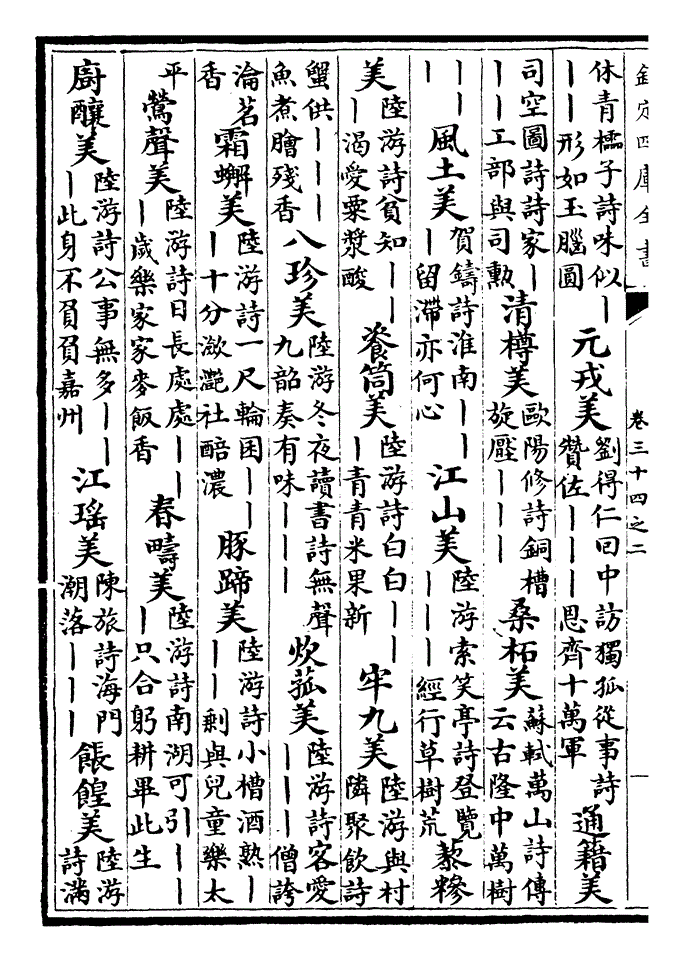 欽定四庫全書
卷三十四之二
休青橻子詩味似丨
丨丨形如玉腦圓
元戎美
劉得仁回中訪獨孤從事詩
贊佐丨丨丨恩齊十萬軍
通籍美
司空圖詩詩家丨
丨丨工部與司勲
清樽美
歐陽修詩銅槽
旋壓丨丨丨
桑柘美
蘇軾萬山詩傳
云古隆中萬樹
丨丨
丨
風土美
賀鑄詩淮南丨丨
丨留滯亦何心
江山美
陸游索笑亭詩登覽
丨丨丨經行草樹荒
藜糝
美
陸游詩貧知丨丨
丨渴愛粟漿酸
餈筒美
陸游詩白白丨丨
丨青青米果新
牢九美
陸游與村
隣聚飲詩
蟹供丨丨丨
魚煮膾殘香
八珍美
陸游冬夜讀書詩無聲
九韶奏有味丨丨丨
炊菰美
陸游詩客愛
丨丨丨僧誇
淪茗
香
霜蠏美
陸游詩一尺輪囷丨丨
丨十分瀲灩社醅濃
豚蹄美
陸游詩小槽酒熟丨
丨丨剩與兒童樂太
平
鶯聲美
陸游詩日長處處丨丨
丨歲樂家家麥飯香
春疇美
陸游詩南湖可引丨丨
丨只合躬耕畢此生
廚釀美
陸游詩公事無多丨丨
丨此身不負負嘉州
江瑶美
陳旅詩海門
潮落丨丨丨
餦餭美
陸游
詩滿